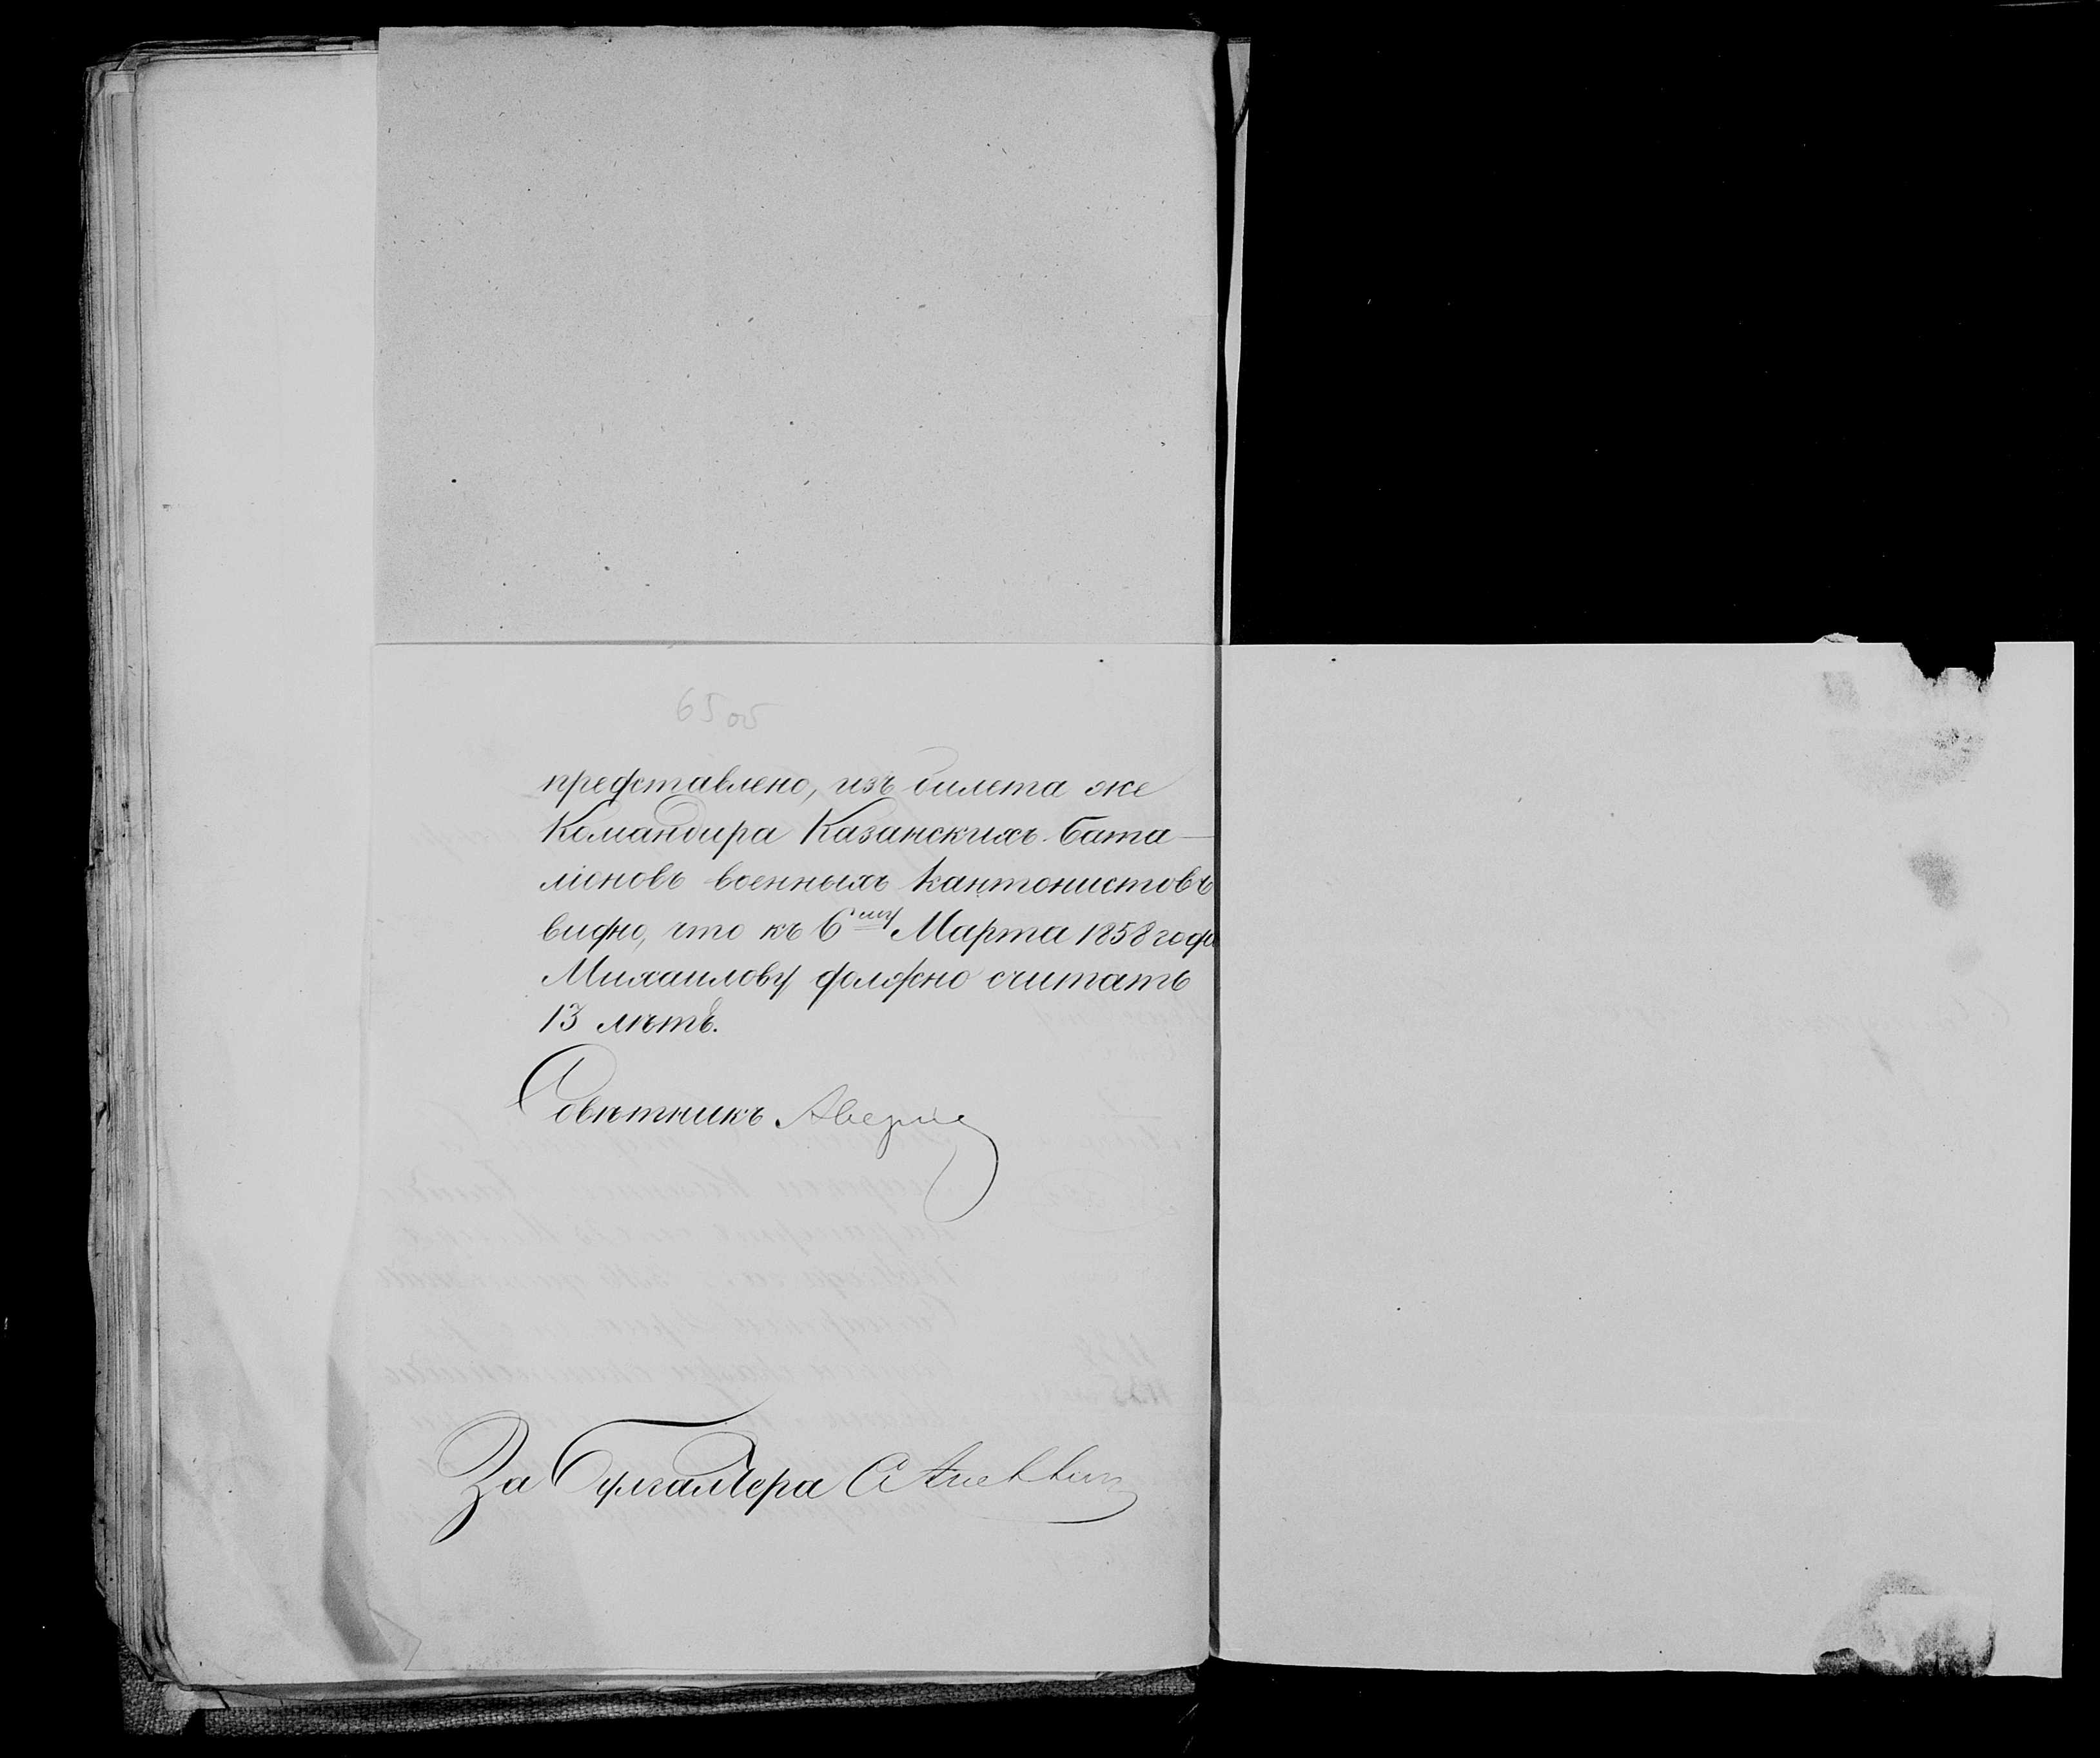 65 об
представлено, изъ билета же
Командира Казанскихъ бата-
ліоновъ военныхъ кантонистовъ
видно, что къ 6му Марта 1858 года
Михаилову должно считать
13 лѣтъ.
Совѣтникъ
За Бухгалтера